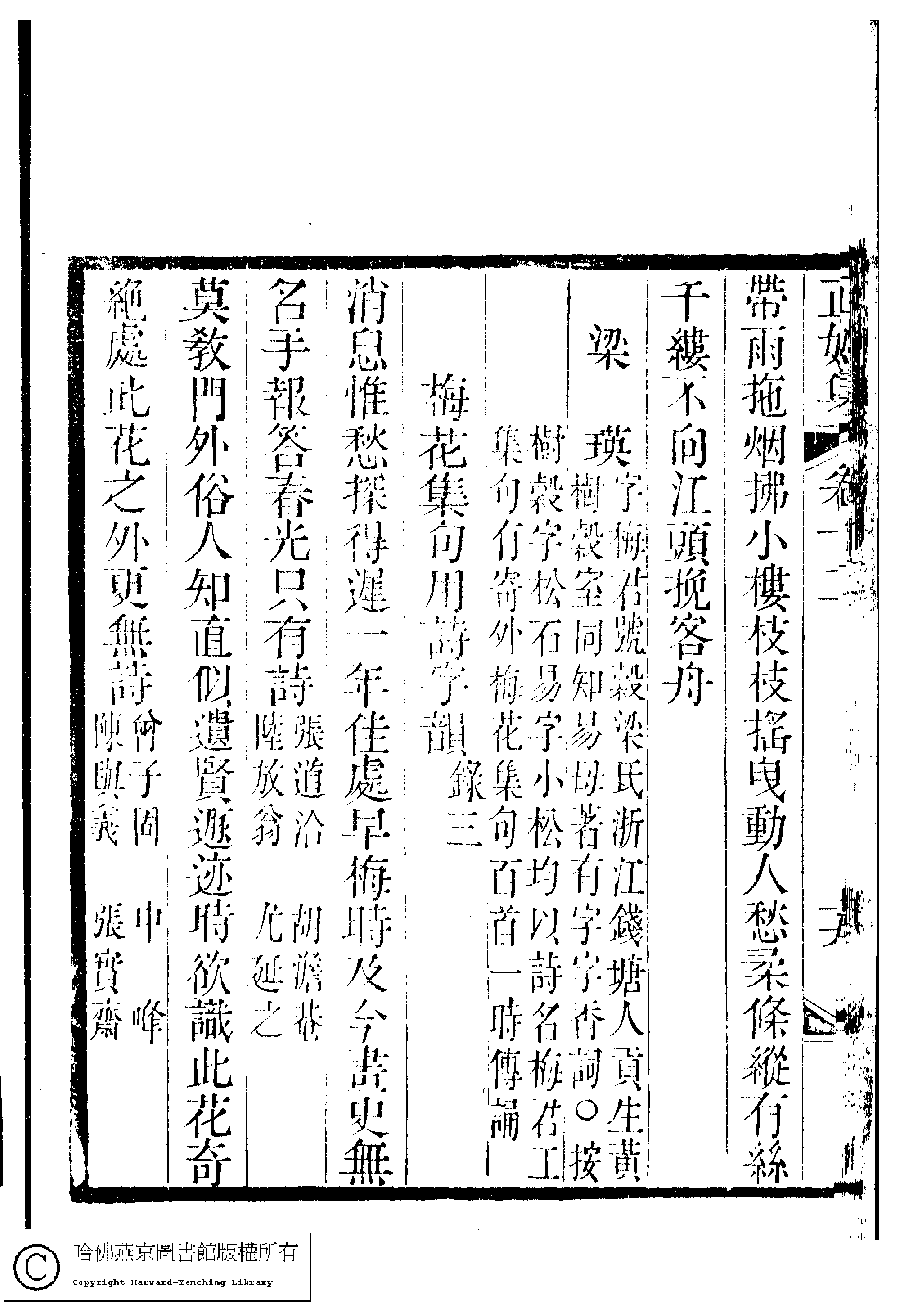 正始集 卷十二 九
帶雨拖烟拂小樓枝枝搖曳動人愁柔條縱有絲
千縷不向江頭挽客舟
梁 瑛字梅君號榖梁氏浙江錢塘人貢生黃
樹榖室同知易母著有字字香詞○按
樹榖字松石易字小松均以詩名梅君工
集句有寄外梅花集句百首一時傳誦
梅花集句用詩字韻錄三
消息惟愁探得遲一年佳處早梅時及今畫史無
名手報答春光只有詩張道洽 胡澹菴
陸放翁 尤延之
莫教門外俗人知直似遺賢遯迹時欲識此花奇
絕處此花之外更無詩曾子固 中 峰
陳與義 張實齋
哈佛燕京圖書館版權所有
Copyright Harvard-Yenching Library